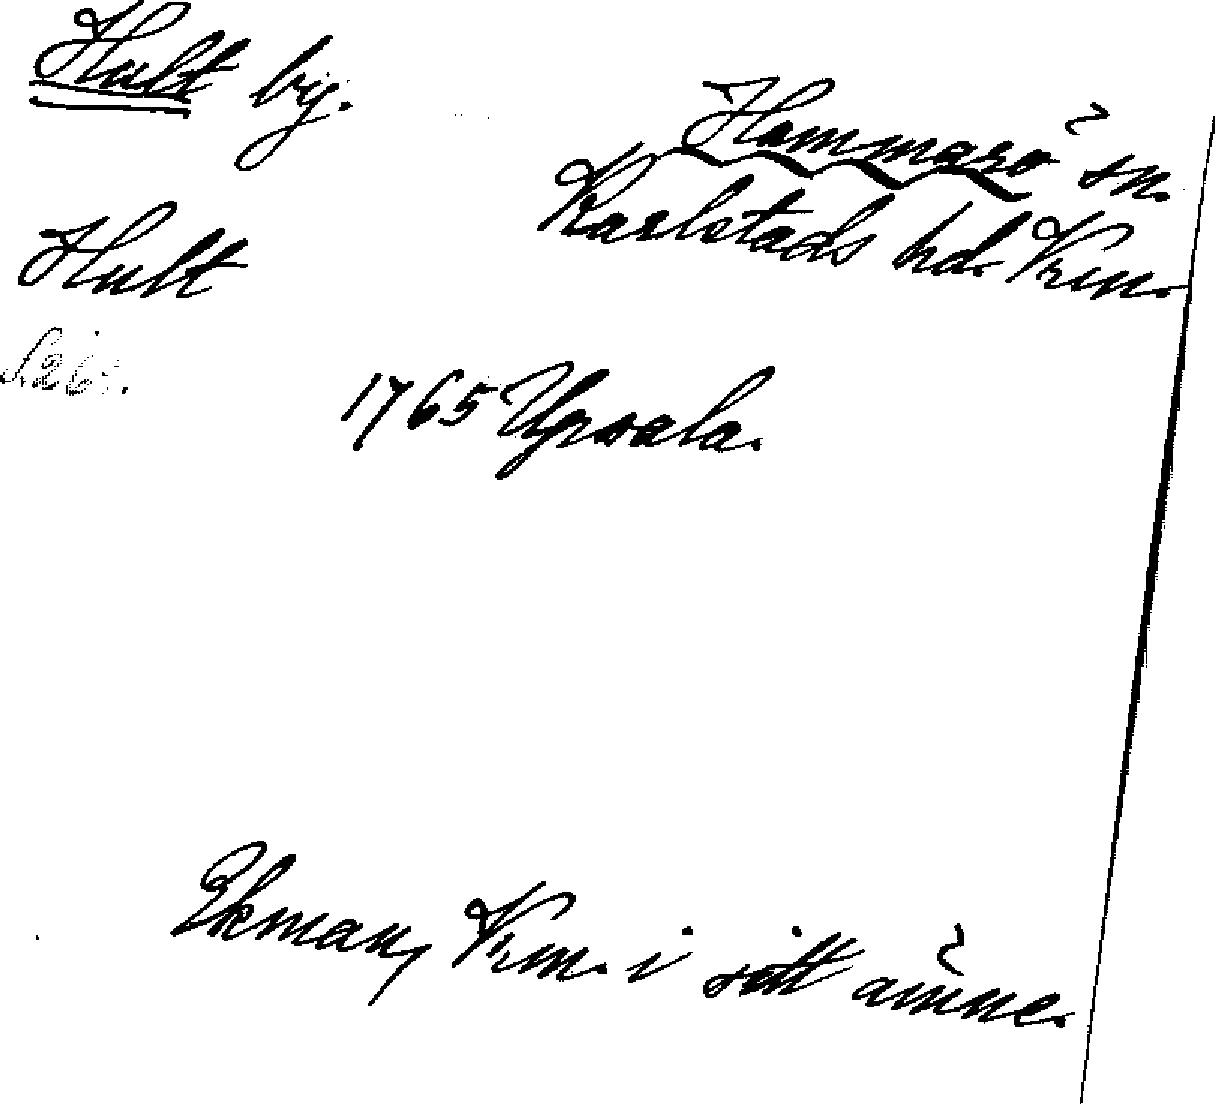 Hult by.
Hammarö sn.
Karlstads hd. Vrm.
Hult
S. 26
1765 Upsala.
Ekman, Vrm. i sitt ämne.